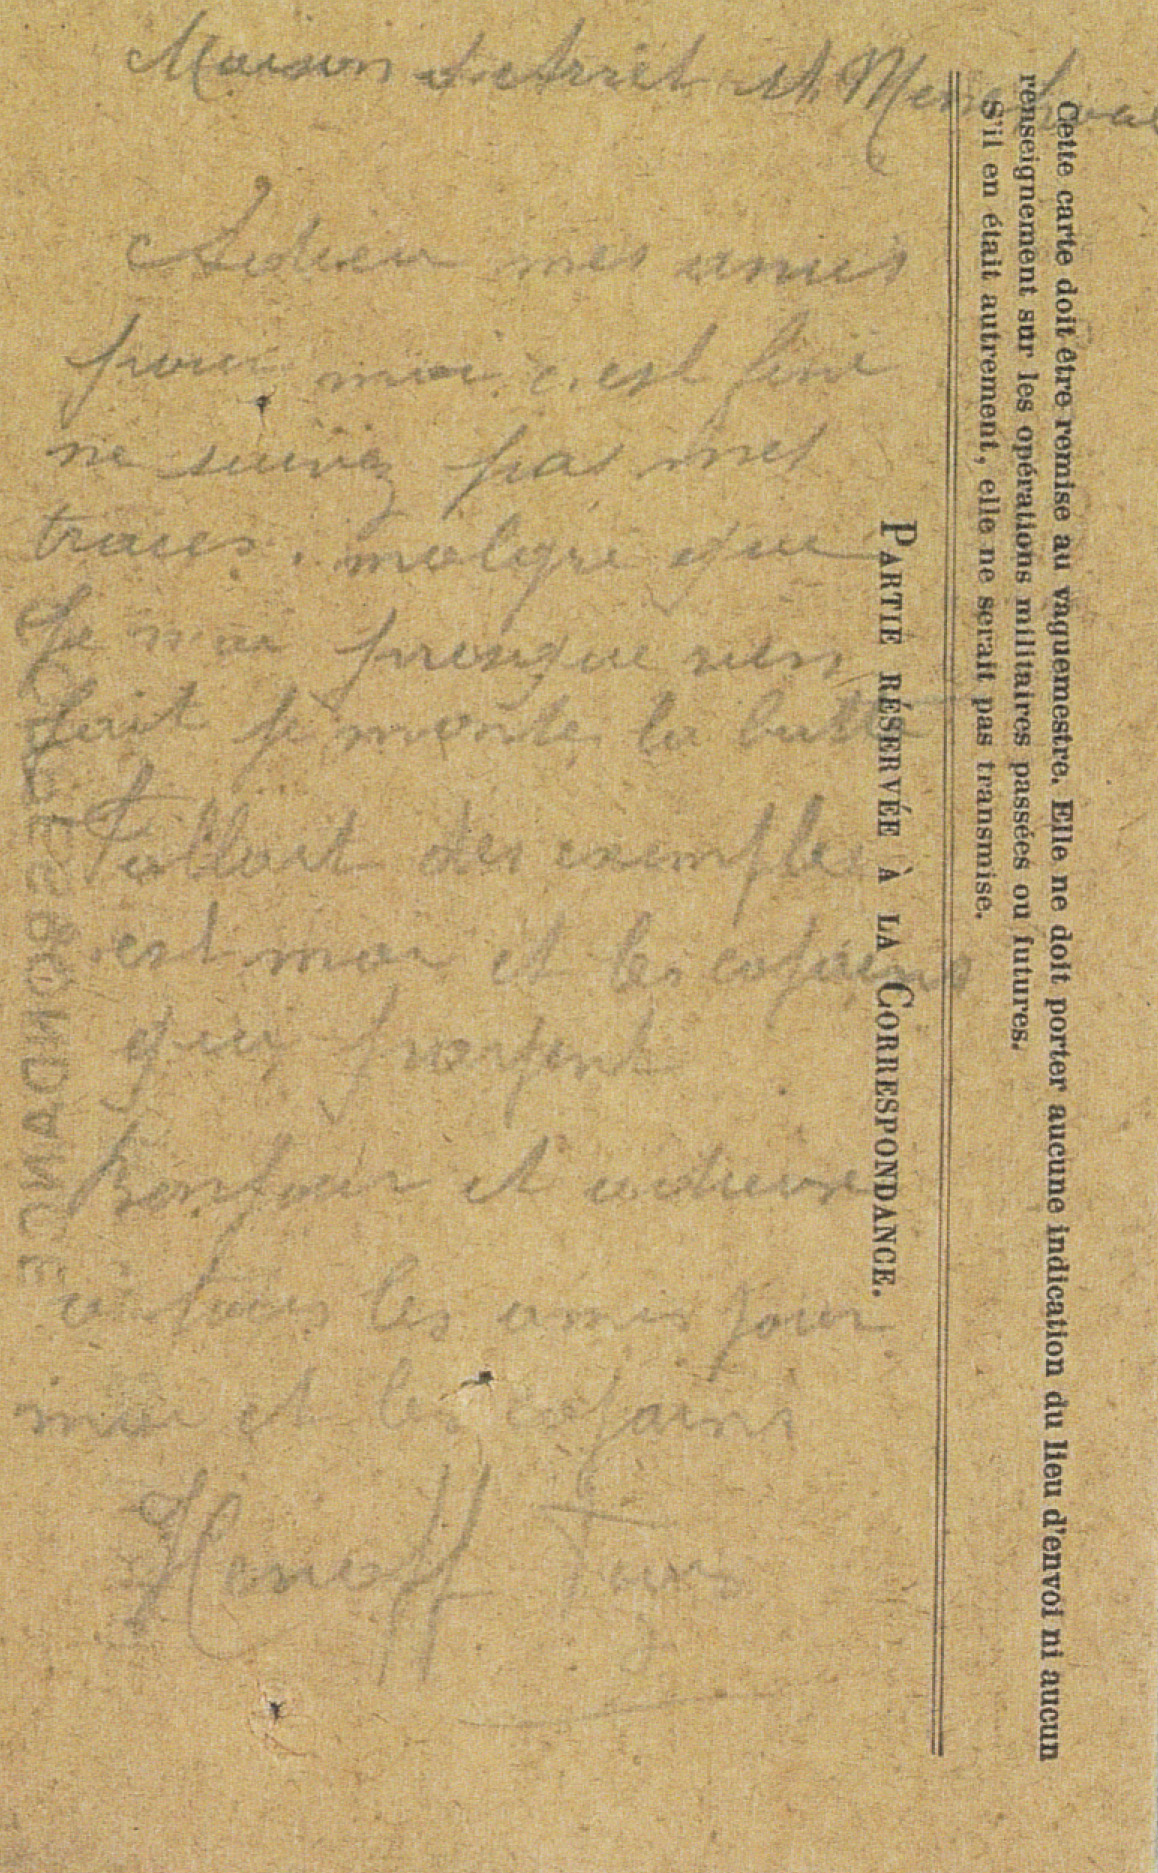 Maison d'arrêt St Menehoul
Adieu mes amis
pour moi c'est fini
ne suivez pas mes
traces. malgré que
je n'ai presque rien
fait je monte la butte
Fallait des exemples
c'est moi et les copains
qui payent
Bonjour et adieux
à tous les amis pour
moi et les copains
PARTIE RÉSERVÉE À LA CORRESPONDANCE.
Cette carte doit être remise au vaguemestre. Elle ne doit porter aucune indication du lieu d'envoi ni aucun
renseignement sur les opérations militaires passées ou futures.
S'il en était autrement, elle ne serait pas transmise.